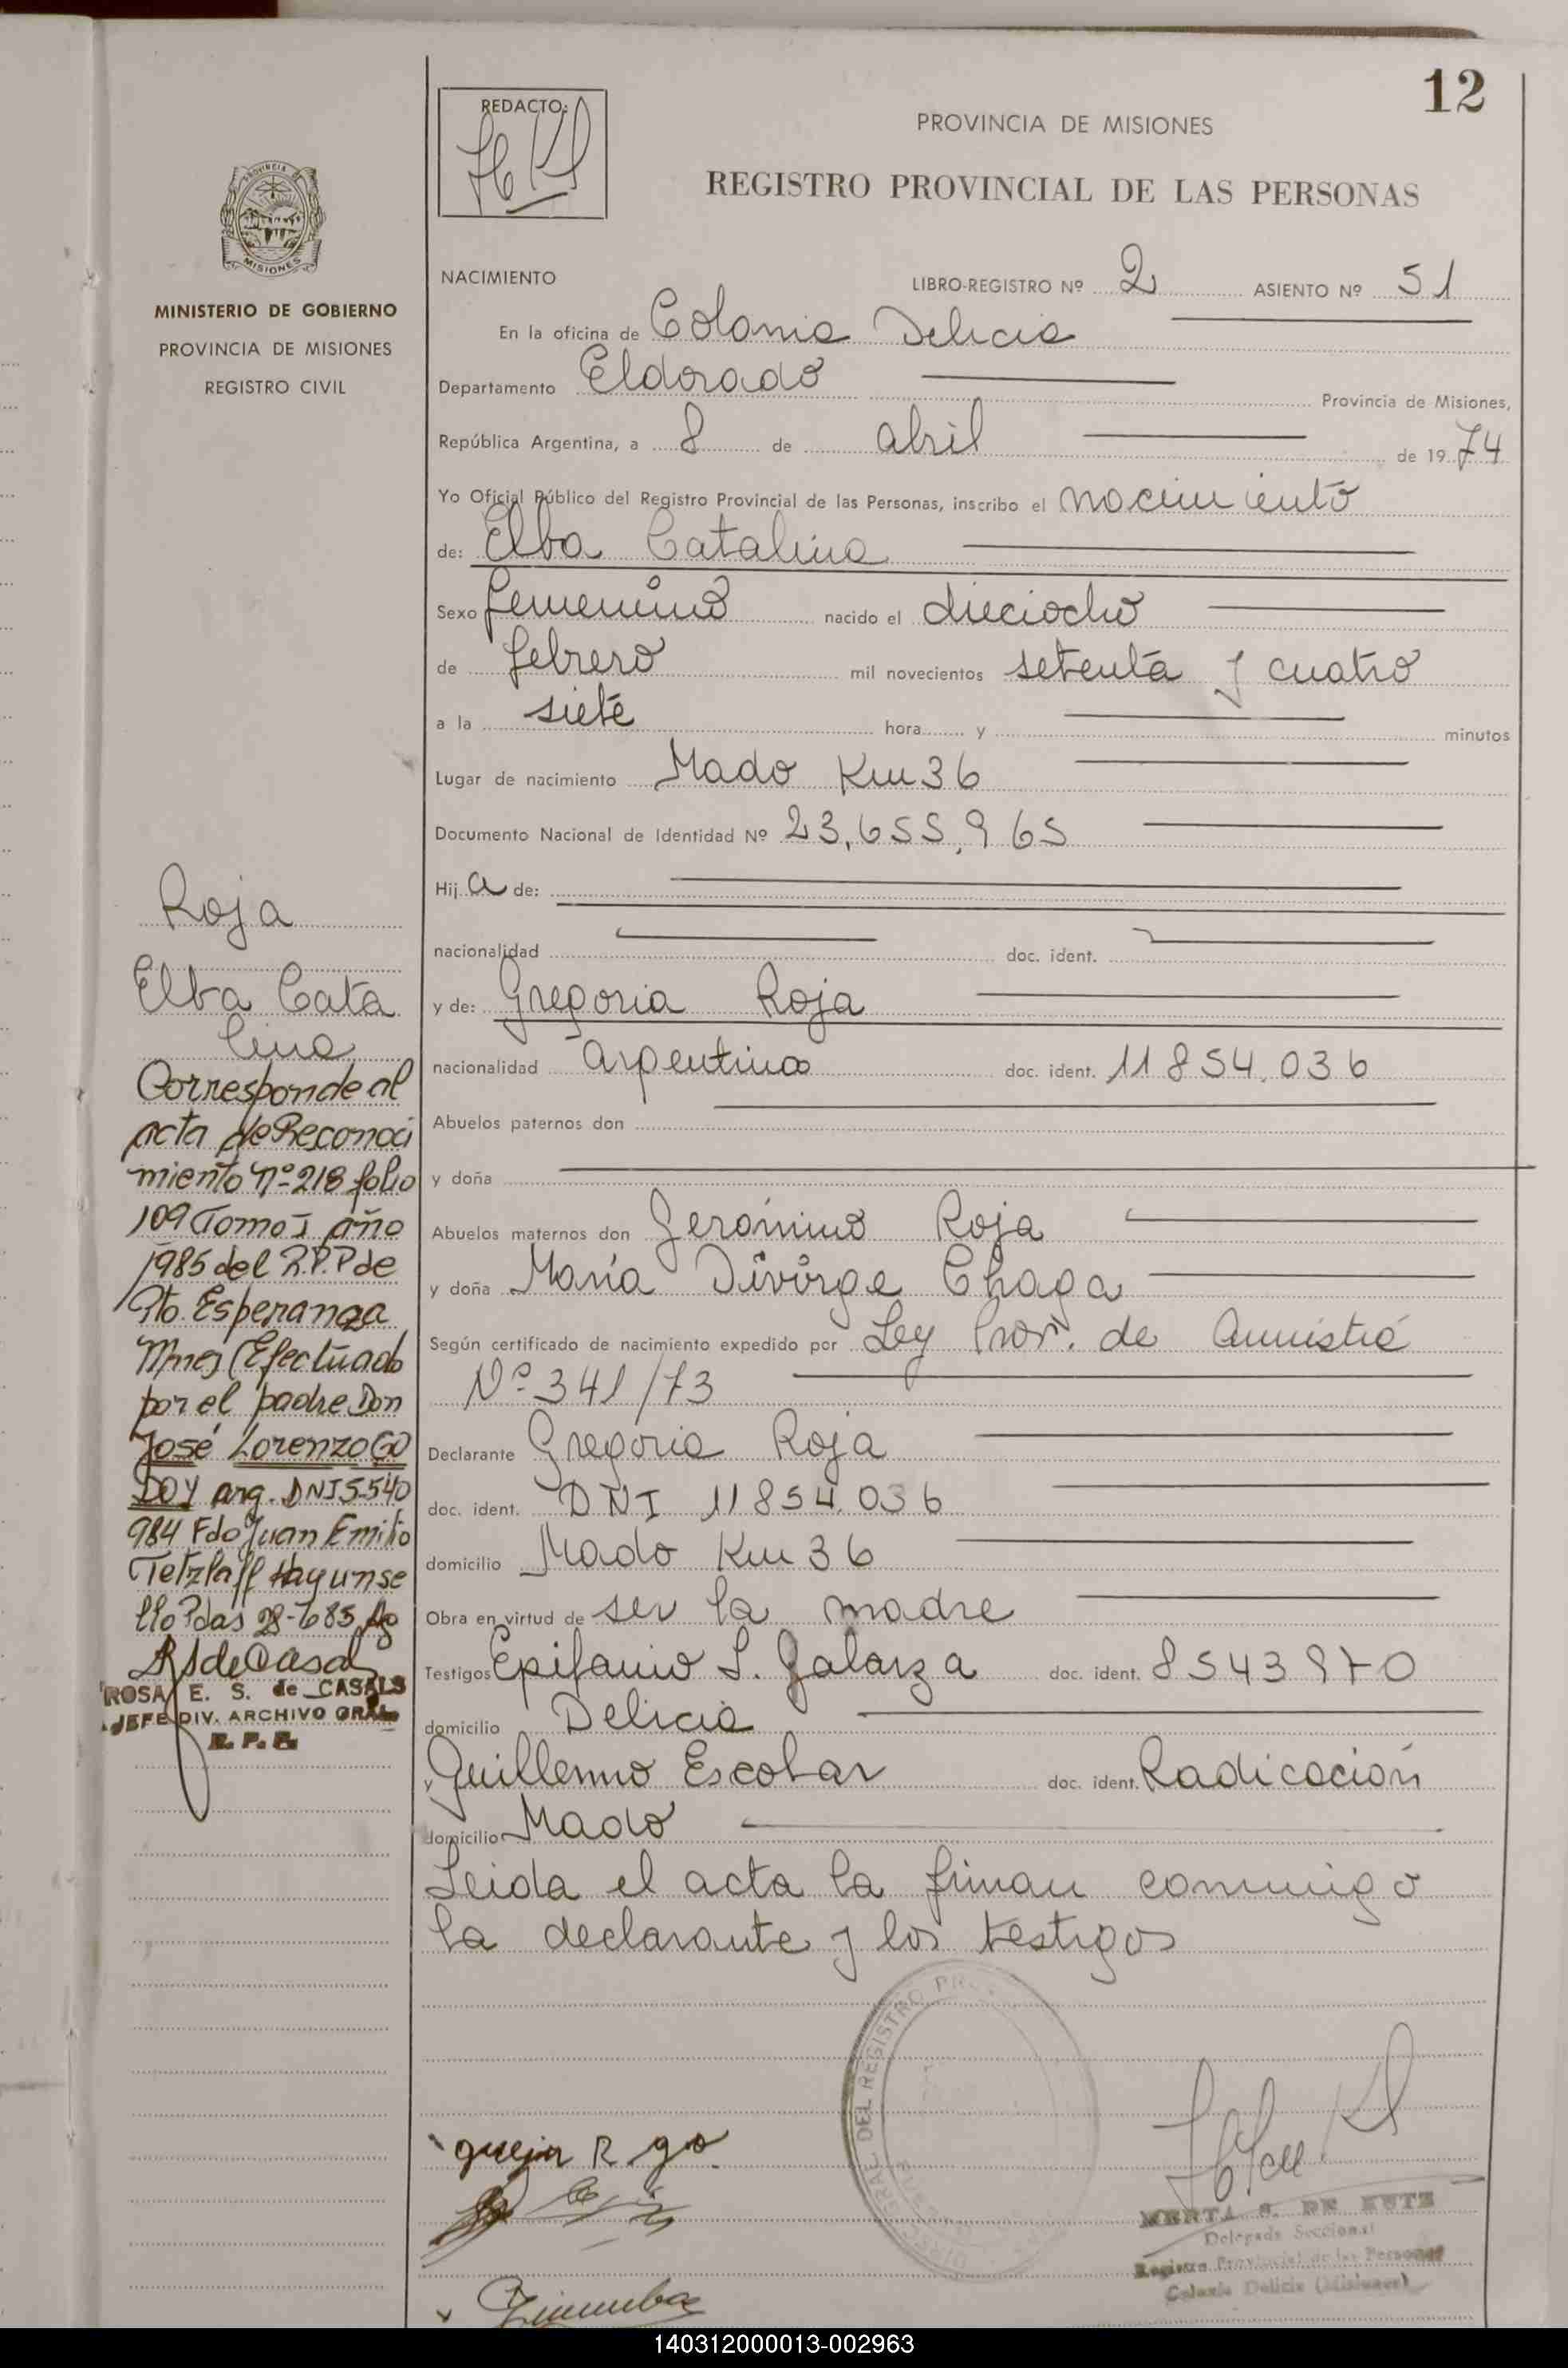 12
REDACTO:
PROVINCIA DE MISIONES
REGISTRO PROVINCIAL DE LAS PERSONAS
PROVINCIA DE
MISIONES
MINISTERIO DE GOBIERNO
PROVINCIA DE MISIONES
REGISTRO CIVIL
NACIMIENTO LIBRO-REGISTRO Nº 2 ASIENTO Nº 51
En la oficina de Colonia Delicia
Departamento Eldorado Provincia de Misiones,
República Argentina, a 8 de abril de 1974
Yo Oficial Público del Registro Provincial de las Personas, inscribo el nacimiento
de: Elba Catalina
Sexo femenino nacido el dieciocho
de febrero mil novecientos setenta y cuatro
a la siete hora y minutos
Lugar de nacimiento Mado Km 36
Documento Nacional de Identidad Nº 23.655.965
Hija de:
nacionalidad doc. ident.
y de: Gregoria Roja
nacionalidad Argentina doc. ident. 11854.036
Abuelos paternos don
y doña
Abuelos maternos don Gerónimo Roja
y doña María Divirge Chaga
Según certificado de nacimiento expedido por Ley Prov. de Amnistía
Nº 341/73
Declarante Gregoria Roja
doc. ident. DNI 11854.036
domicilio Mado Km 36
Obra en virtud de ser la madre
Testigos Epifanio S. Galarza doc. ident. 8543970
domicilio Delicia
y Guillermo Escobar doc. ident. Radicación
domicilio Mado
Leida el acta la firman conmigo
la declarante y los testigos
Roja
Elba Cata
lina
Corresponde al
acta de Reconoci
miento Nº 218 folio
109 Tomo I año
1985 del R.P.P de
Pto. Esperanza
Mnes (Efectuado
por el padre Don
José Lorenzo GO
DOY arg. DNI 5.540
984 Fdo Juan Emilio
Tetzlaff Hay un se
llo Pdas 28-
ROSA E. S. de CASALS
JEFE DIV. ARCHIVO GRAL.
R. P. P.
DEL REGISTRO
MERTA S. DE KUTZ
Delegada Seccional
Registro Provincial de las Personas
Colonia Delicia (Misiones)
140312000013-002963